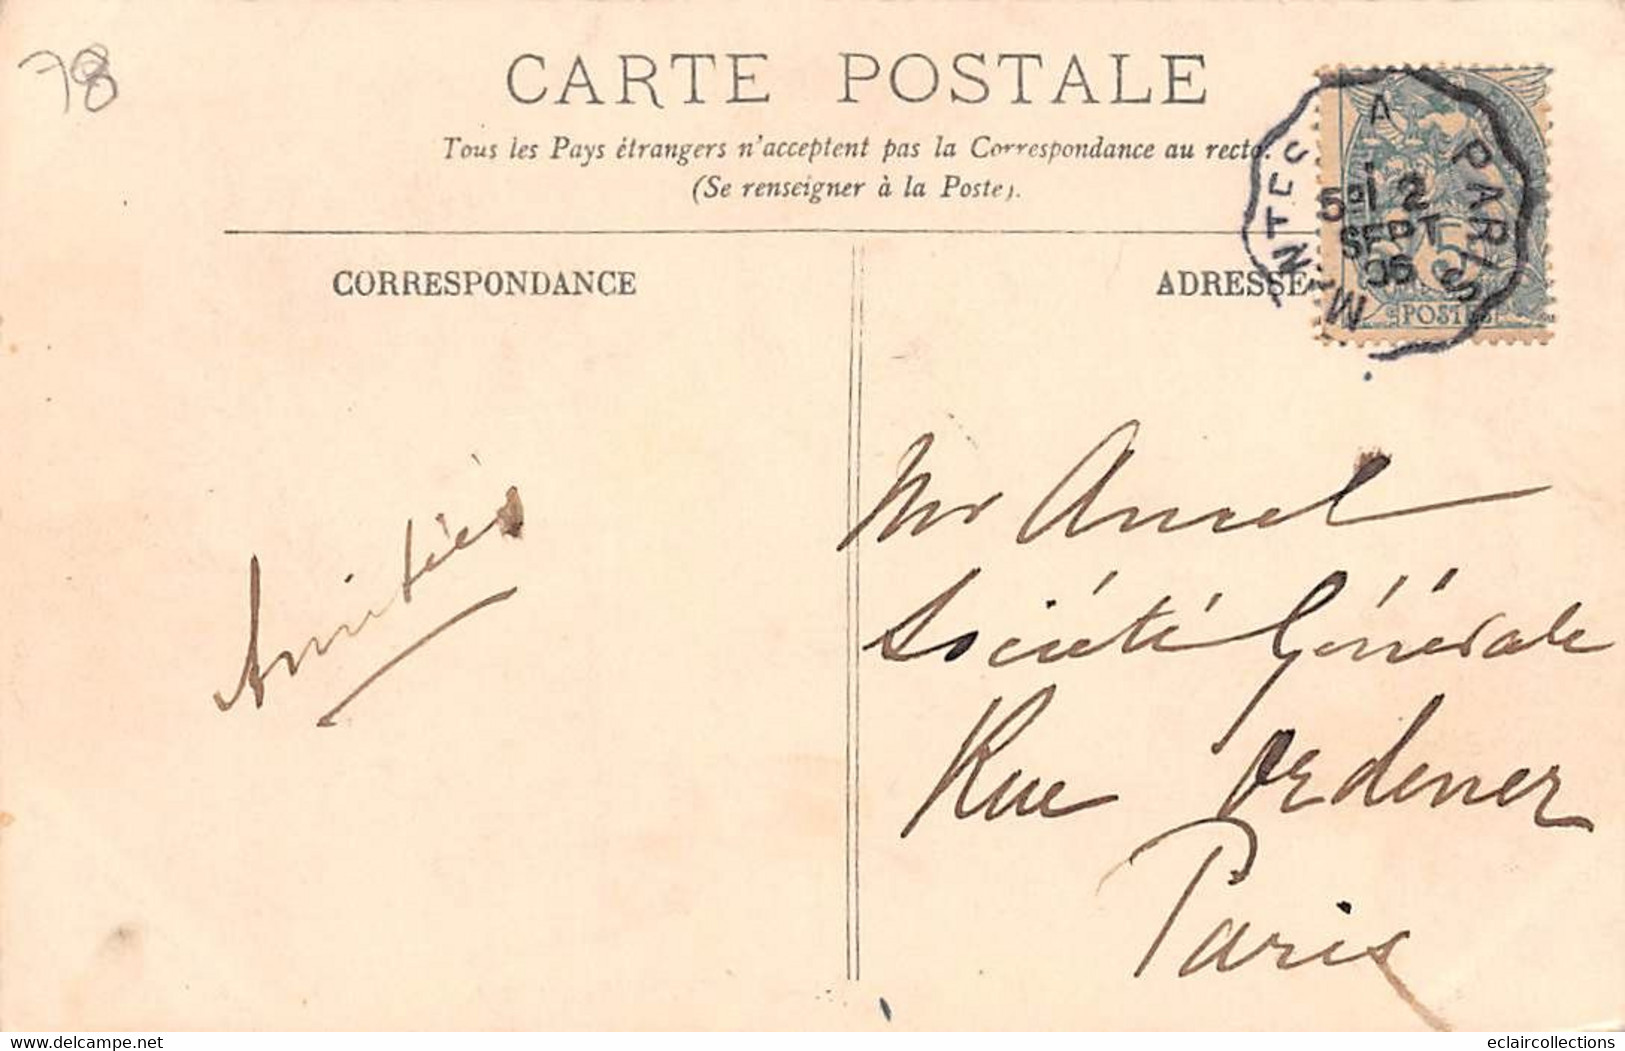 78
CARTE POSTALE
Tous les Pays étrangers n'acceptent pas la Correspondance au recto.
(Se renseigner à la Poste).
CORRESPONDANCE
ADRESSE
MANTES A PARIS
12
SEPT
POSTES
Amitiés
Mr Ancel
Société Générale
Rue Ordener
Paris
delcampe.net
eclaircollections